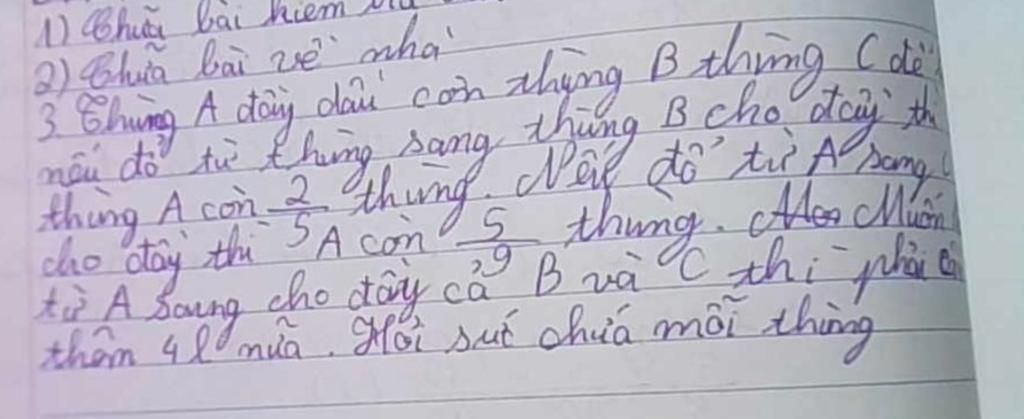 1) Chữa bài kiểm
2) Chữa bài về nhà
3. Thùng A đầy dầu còn thùng B thùng C để
nếu đổ từ thùng sang thùng B cho đầy thì
thùng A còn 2/5 thùng. Nếu đổ từ A sang C
cho đầy thì A còn 5/9 thùng. Muốn
từ A sang cho đầy cả B và C thì phải
thêm 4l nữa. Hỏi sức chứa mỗi thùng